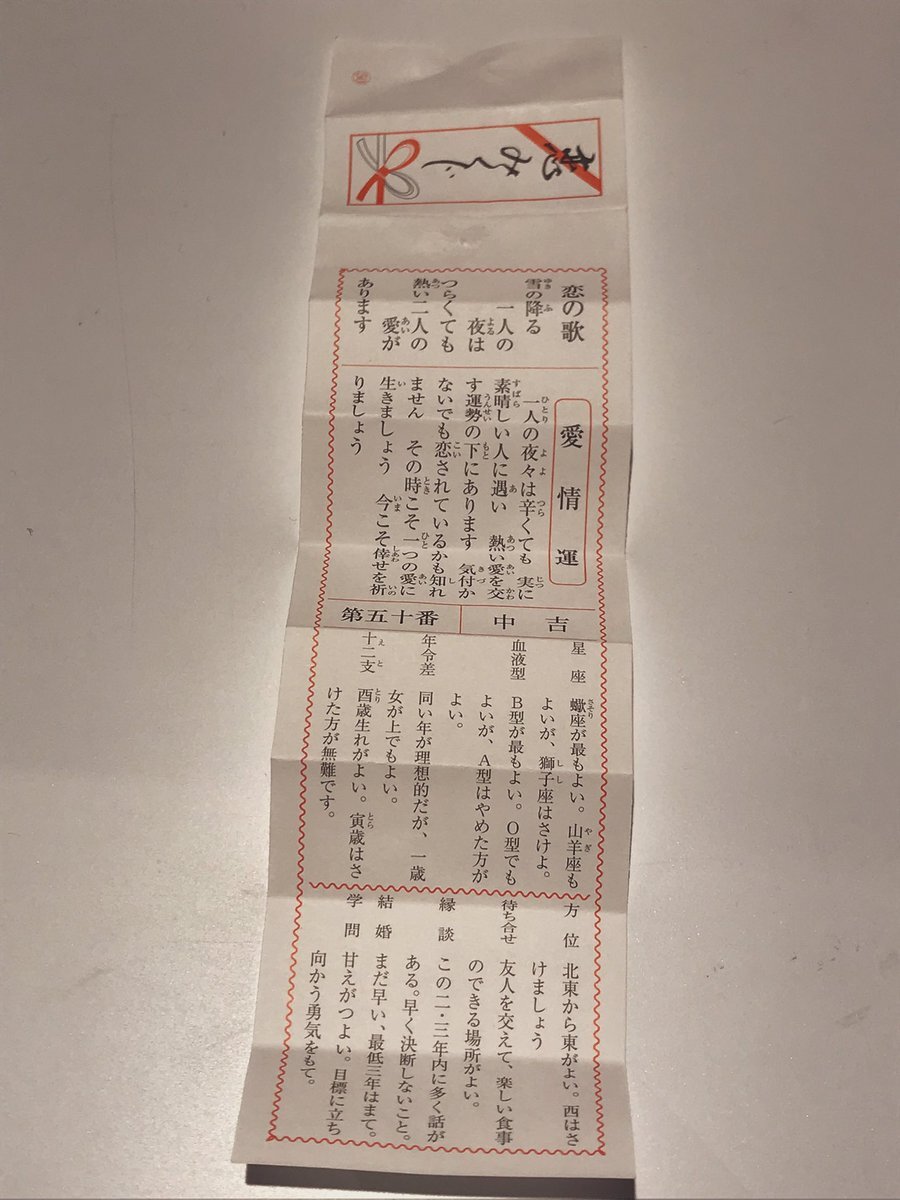 恋みくじ
恋の歌
雪の降る
一人の
夜は
つらくても
熱い二人の
愛が
あります
愛情運
一人の夜々は辛くても 実に
素晴しい人に遇い 熱い愛を交
す運勢の下にあります 気付か
ないでも恋されているかも知れ
ません その時こそ一つの愛に
生きましょう 今こそ倖せを祈
りましょう
中吉
第五十番
星座 蠍座が最もよい。山羊座も
よいが、獅子座はさけよ。
血液型 B型が最もよい。O型でも
よいが、A型はやめた方が
よい。
年令差 同い年が理想的だが、一歳
女が上でもよい。
十二支 酉歳生れがよい。寅歳はさ
けた方が無難です。
方位 北東から東がよい。西はさ
けましょう
待ち合せ 友人を交えて、楽しい食事
のできる場所がよい。
縁談 この二・三年内に多く話が
ある。早く決断しないこと。
結婚 まだ早い、最低三年はまて。
学問 甘えがつよい。目標に立ち
向かう勇気をもて。